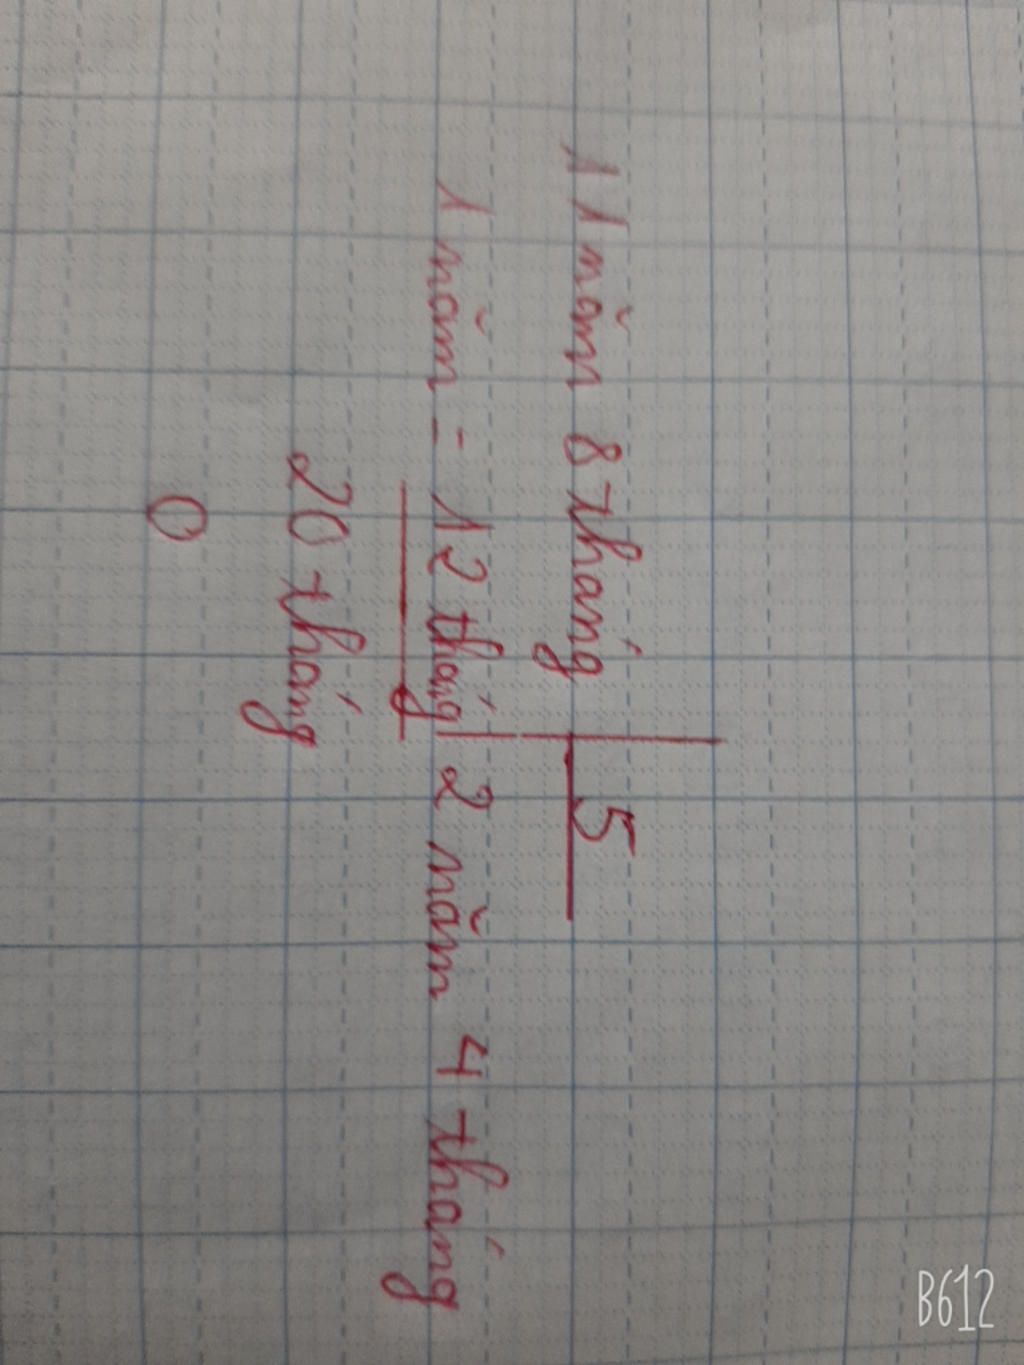 11 năm 8 tháng 5
1 năm = 12 tháng 2 năm 4 tháng
20 tháng
0
B612